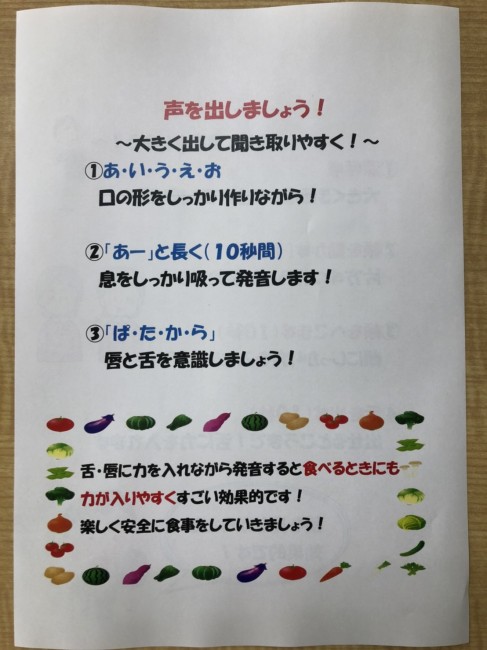 声を出しましょう！
～大きく出して聞き取りやすく！～
①あ・い・う・え・お
口の形をしっかり作りながら！
②「あー」と長く（10秒間）
息をしっかり吸って発音します！
③「ぱ・た・か・ら」
唇と舌を意識しましょう！
舌・唇に力を入れながら発音すると食べるときにも
力が入りやすくすごい効果的です！
楽しく安全に食事をしていきましょう！